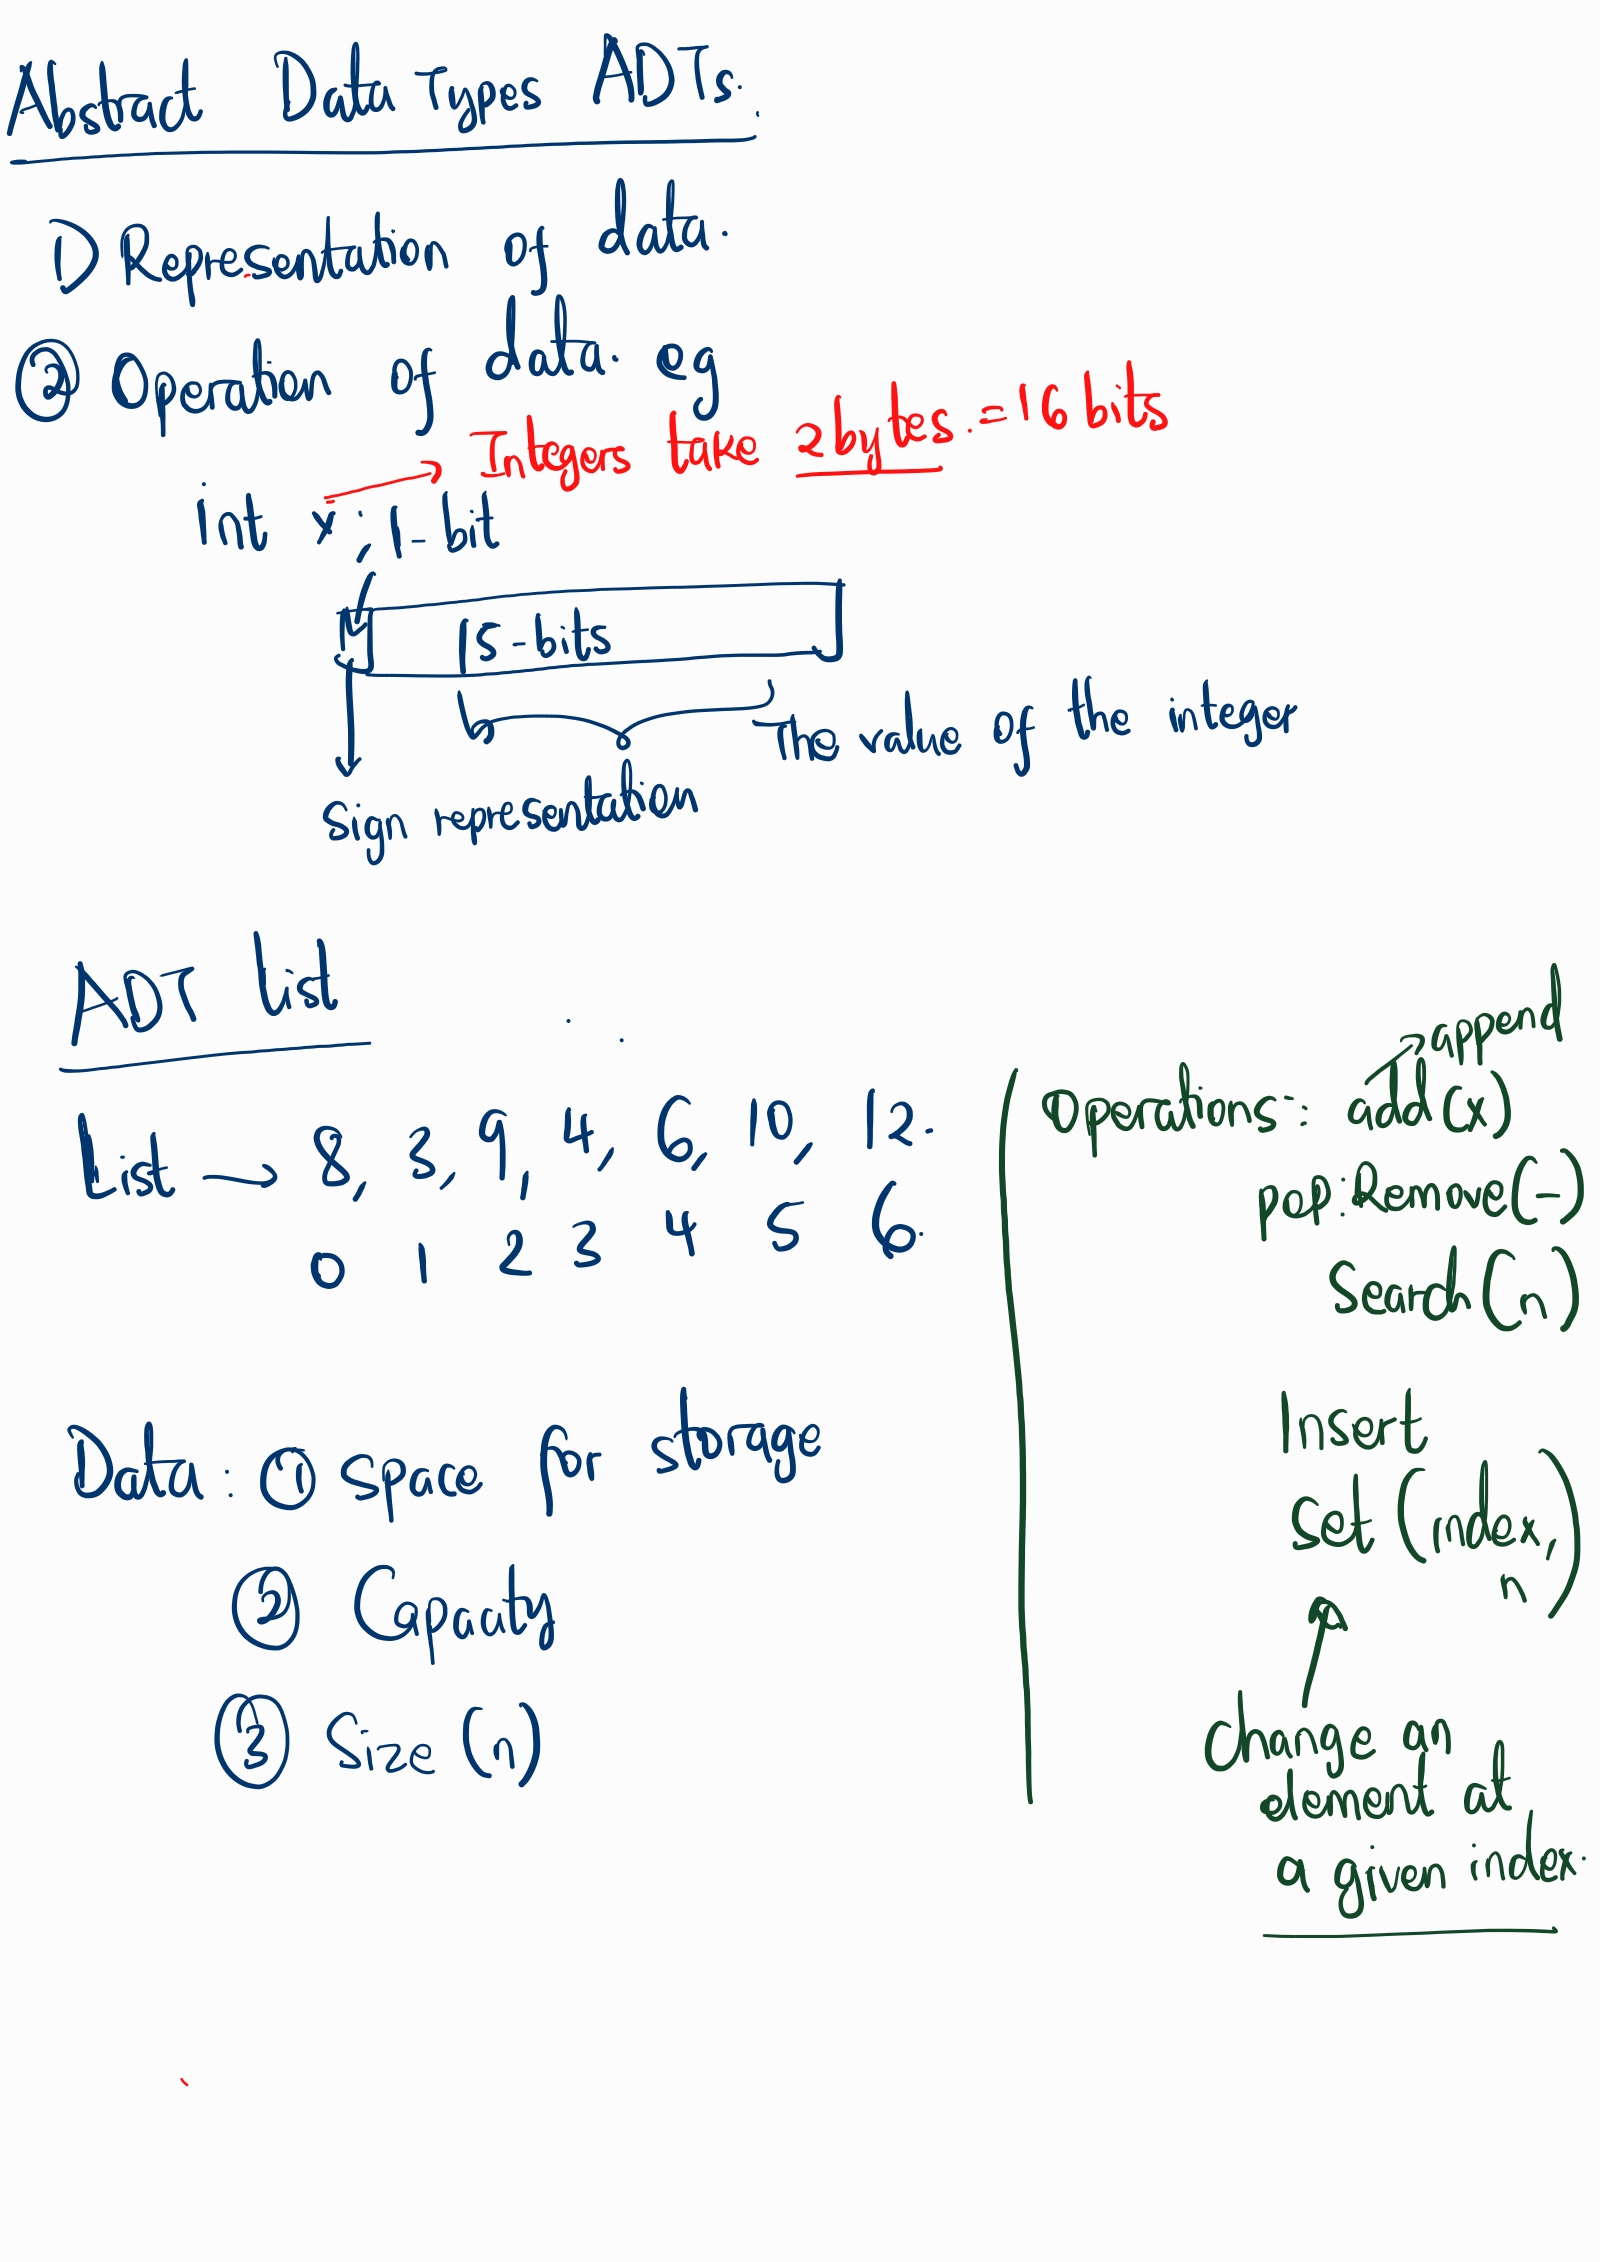 Abstract Data Types ADTs.
1) Representation of data.
② Operation of data. eg
Integers take 2 bytes. = 16 bits
int x; 1-bit
15-bits
The value of the integer
Sign representation
ADT List
List → 8, 3, 9, 4, 6, 10, 12.
0 1 2 3 4 5 6.
Data: ① Space for storage
② Capacity
③ Size (n)
append
Operations: add(x)
pop: Remove(-)
Search(n)
Insert
Set (index,
n)
Change an
element at
a given index.